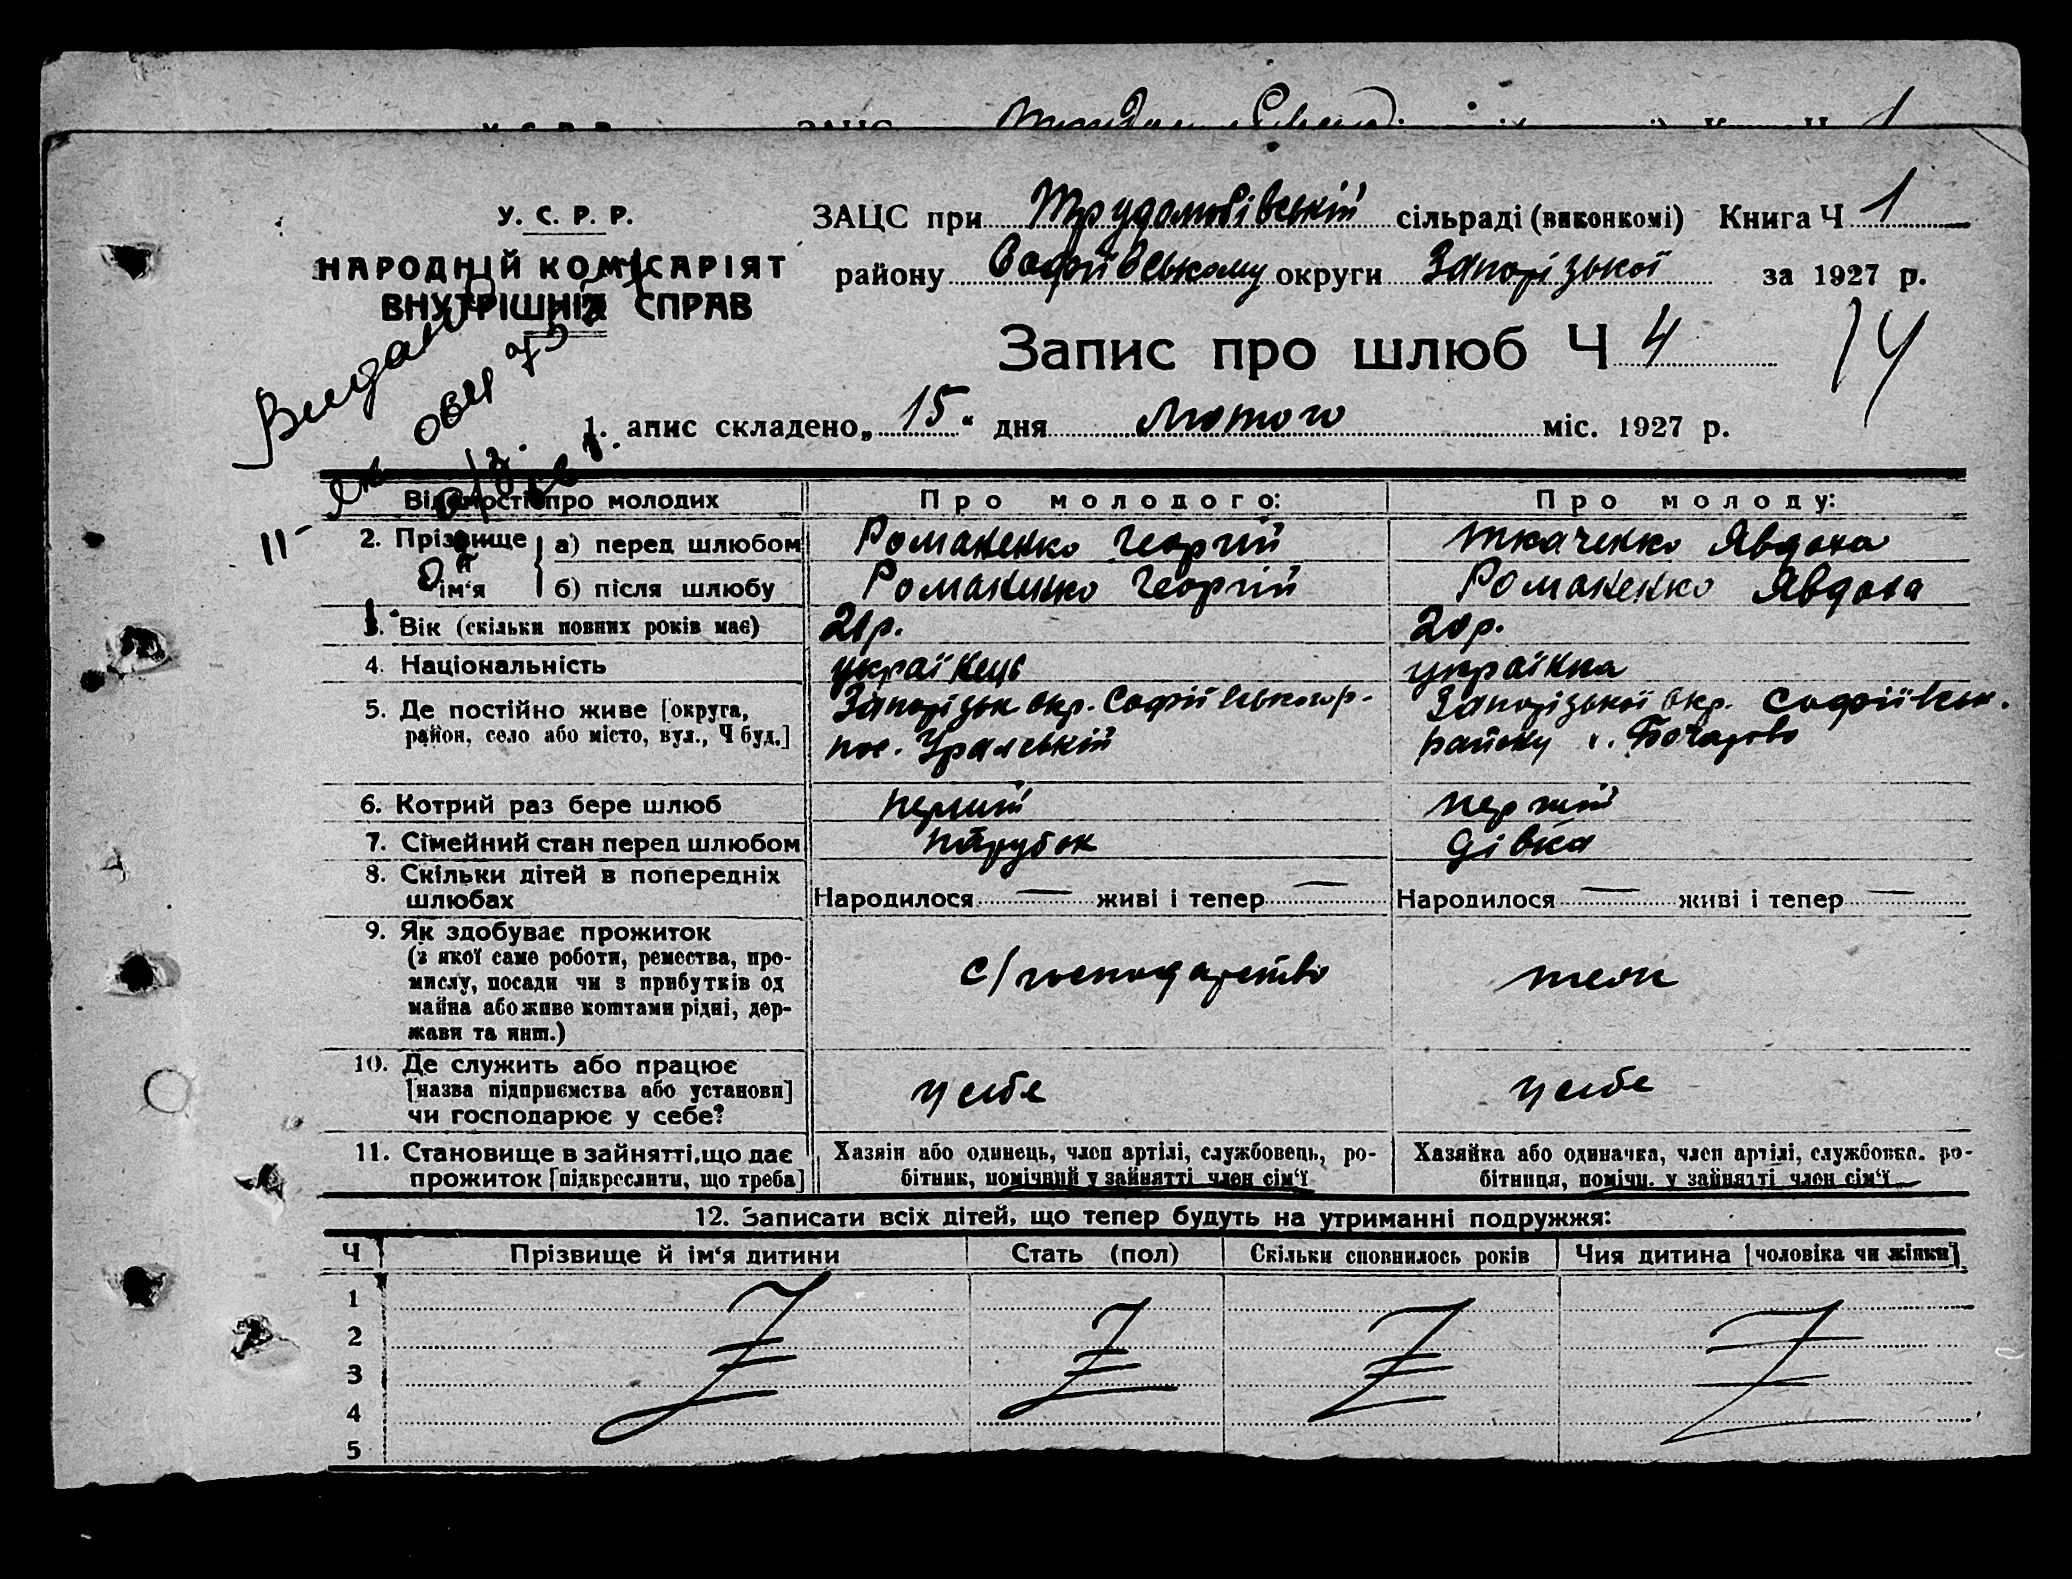 У. С. Р. Р.
НАРОДНІЙ КОМІСАРІЯТ
ВНУТРІШНІХ СПРАВ
ЗАЦС при Трудолюбівській сільраді (виконкомі) Книга Ч 1
району Софіївському округи Запорізької за 1927 р.
Запис про шлюб Ч 4
14
1. апис складено „ 15 “ дня лютого міс. 1927 р.
Відомості про молодих
Про молодого:
Про молоду:
2. Прізвище й ім'я
а) перед шлюбом Романенко Георгій Ткаченко Явдоха
б) після шлюбу Романенко Георгій Романенко Явдоха
3. Вік (скільки повних років має) 21р. 20р.
4. Національність українець українка
5. Де постійно живе [округа, Запорізьк окр. Софіївського р. Запорізької окр. Софіївськ.
район, село або місто, вул., Ч буд.] пос. Уральській району с. Бочарово
6. Котрий раз бере шлюб перший перший
7. Сімейний стан перед шлюбом парубок дівка
8. Скільки дітей в попередніх
шлюбах Народилося — живі і тепер — Народилося — живі і тепер —
9. Як здобуває прожиток
(з якої саме роботи, ремества, про-
мислу, посади чи з прибутків од с/господарство теж
майна або живе коштами рідні, дер-
жави та инш.)
10. Де служить або працює
[назва підприємства або установи] у себе у себе
чи господарює у себе?
11. Становище в зайнятті, що дає Хазяїн або одинець, член артілі, службовець, ро- Хазяйка або одиначка, член артілі, службовка. ро-
прожиток [підкреслити, що треба] бітник, помічний у зайнятті член сім'ї бітниця, помічн. у зайнятті член сім'ї
12. Записати всіх дітей, що тепер будуть на утриманні подружжя:
Ч Прізвище й ім'я дитини Стать (пол) Скільки сповнилось років Чия дитина [чоловіка чи жінки]
1
2
3
4
5